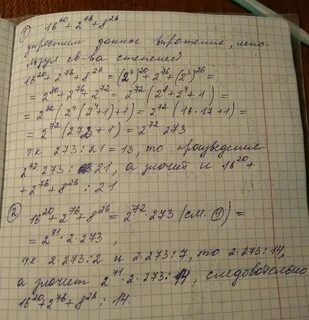 ① 16²⁰ + 2⁷⁶ + 8²⁶
упростим данное выражение, испо-
льзуя св-ва степеней
16²⁰ + 2⁷⁶ + 8²⁶ = (2⁴)²⁰ + 2⁷⁶ + (2³)²⁶ =
= 2⁸⁰ + 2⁷⁶ + 2⁷⁸ = 2⁷²(2⁸ + 2⁴ + 1) =
= 2⁷²(2⁴(2⁴+1)+1) = 2⁷²(16·17+1) =
= 2⁷²(272+1) = 2⁷²·273
т.к. 273:21 = 13, то произведение
2⁷²·273 : 21, а значит и 16²⁰ +
+ 2⁷⁶ + 8²⁶ : 21
② 16²⁰ + 2⁷⁶ + 8²⁶ = 2⁷²·273 (см. ①) =
= 2⁷¹·2·273,
т.к. 273:2 и 273:7, то 2·273:14,
а значит 2⁷¹·2·273:14, следовательно
16²⁰ + 2⁷⁶ + 8²⁶ : 14.